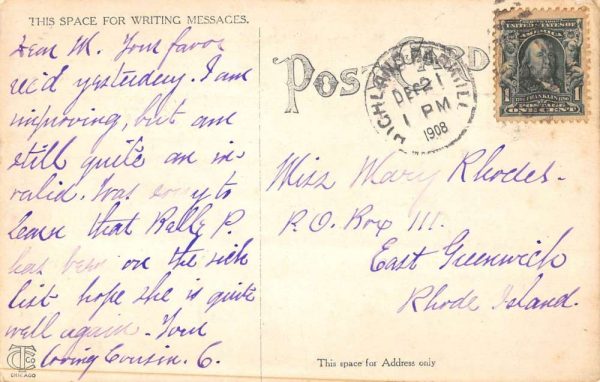 THIS SPACE FOR WRITING MESSAGES.
Dear M. Your favor
rec'd yesterday. I am
improving, but am
still quite an in
valid. Was sorry to
learn that Rally P.
has been on the sick
list hope she is quite
well again. Your
loving Cousin. C.
CHICAGO
POST CARD
HIGHLAND PARK, ILL
DEC 21
1 PM
1908
UNITED STATES OF
AMERICA
1 1
FRANKLIN
ONE CENT
Miss Mary Rhodes.
P.O. Box 111.
East Greenwich
Rhode Island.
This space for Address only